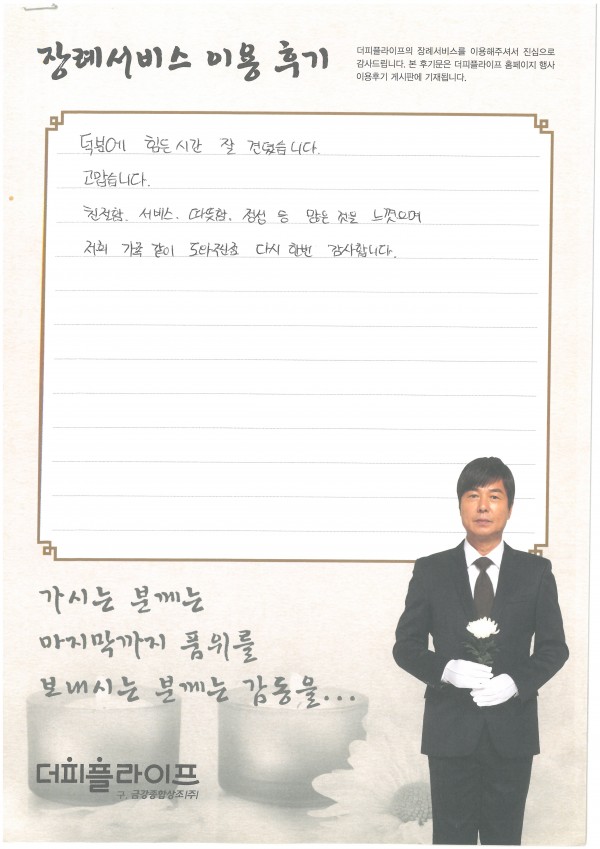 장례서비스 이용 후기
더피플라이프의 장례서비스를 이용해주셔서 진심으로
감사드립니다. 본 후기문은 더피플라이프 홈페이지 행사
이용후기 게시판에 기재됩니다.
덕분에 힘든 시간 잘 견뎠습니다.
고맙습니다.
친절함, 서비스, 따뜻함, 정성 등 많은 것을 느꼈으며
저희 가족 같이 도와주신 다시 한번 감사합니다.
가시는 분께는
마지막까지 품위를
보내시는 분께는 감동을...
더피플라이프
구. 금강종합상조(주)